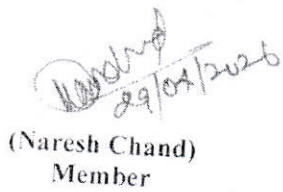 29/04/2026
(Naresh Chand)
Member